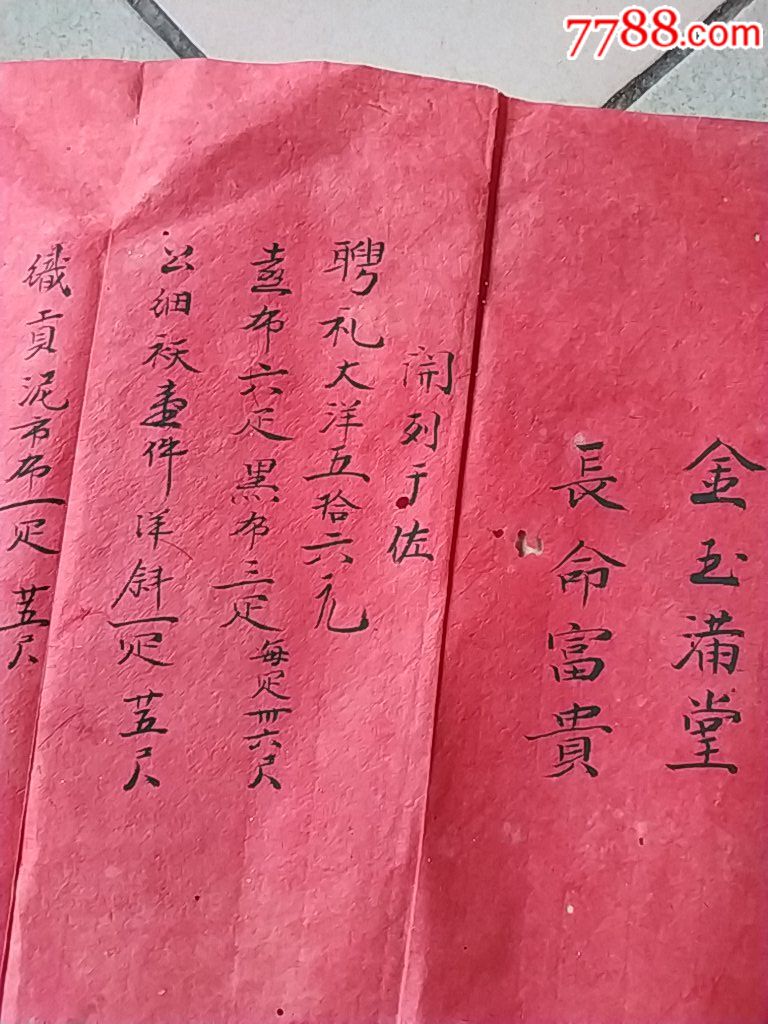 7788.com
金玉滿堂
長命富貴
開列于佐
聘礼大洋五拾六元
布六疋黑布三疋每疋卅六尺
公細袄壹件洋斜一疋廿五尺
織貢泥市布一疋廿五尺